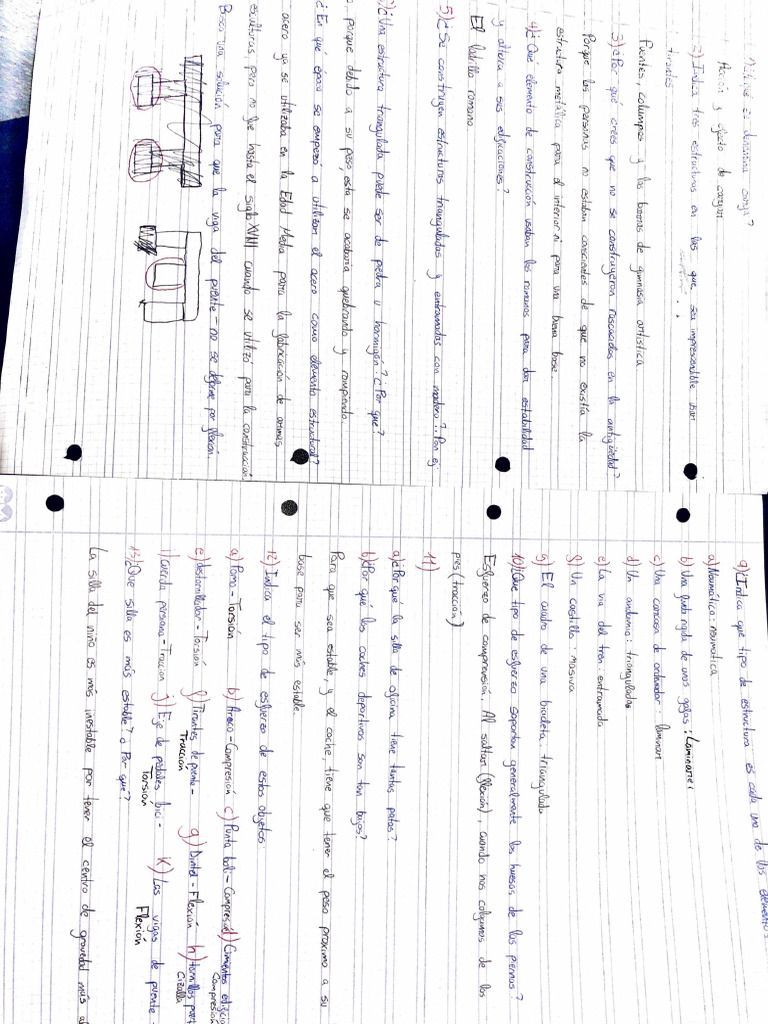 acción y efecto de coger
2) Indica tres estructuras en las que sea imprescindible usar
tirantes.
Puentes, columpios y las barras de gimnasia artística
3) ¿Por qué crees que no se construyeron rascacielos en la antigüedad?
Porque las personas no estaban conscientes de que no existía la
estructura metálica para el interior ni para una buena base.
4) ¿Qué elemento de construcción usaban los romanos para dar estabilidad
y altura a sus edificaciones?
El ladrillo romano
5) ¿Se construyen estructuras trianguladas y entramadas con madera? Pon ej
¿Una estructura triangulada puede ser de piedra u hormigón? ¿Por qué?
porque debido a su peso, esta se acabaria quebrando y rompiendo.
¿En qué época se empezó a utilizar el acero como elemento estructural?
acero ya se utilizaba en la Edad Media para la fabricación de armas,
esculturas, pero no fue hasta el siglo XVIII cuando se utilizó para la construcción
Busca una solución para que la viga del puente no se deforme por flexión.
9) ¿Indica que tipo de estructura es cada uno de los elementos
a) Neumática: neumatica
b) Una funda rigida de unas gafas: Laminar
c) Una carcasa de ordenador: laminar
d) Un andamio: triangulada
e) La via del tren: entramada
f) Un castillo: masiva
g) El cuadro de una bicicleta: triangulada
10) ¿Que tipo de esfuerzo soportan generalmente los huesos de las piernas?
Esfuerzo de comprensión. Al saltar (flexión), cuando nos colgamos de los
pies (tracción)
11)
a) ¿Por qué la silla de oficina tiene tantas patas?
b) ¿Por qué los coches deportivos son tan bajos?
Para que sea estable, y el coche, tiene que tener el peso proximo a su
base para ser más estable.
12) Indica el tipo de esfuerzo de estos objetos:
a) Pomo - Torsión b) Arco - Compresión c) Punta boli - Compresión d) Cimientos edificio Compresión
e) destornillador - Torsión f) Tirantes de puente - Tracción g) Dintel - Flexión h) tornillos Cizalla
i) Cuerda persiana - Traccion j) Eje de pedales bici - Torsión k) Las vigas de puente - Flexión
13) ¿Que silla es más estable? ¿Por qué?
La silla del niño es más inestable por tener el centro de gravedad más